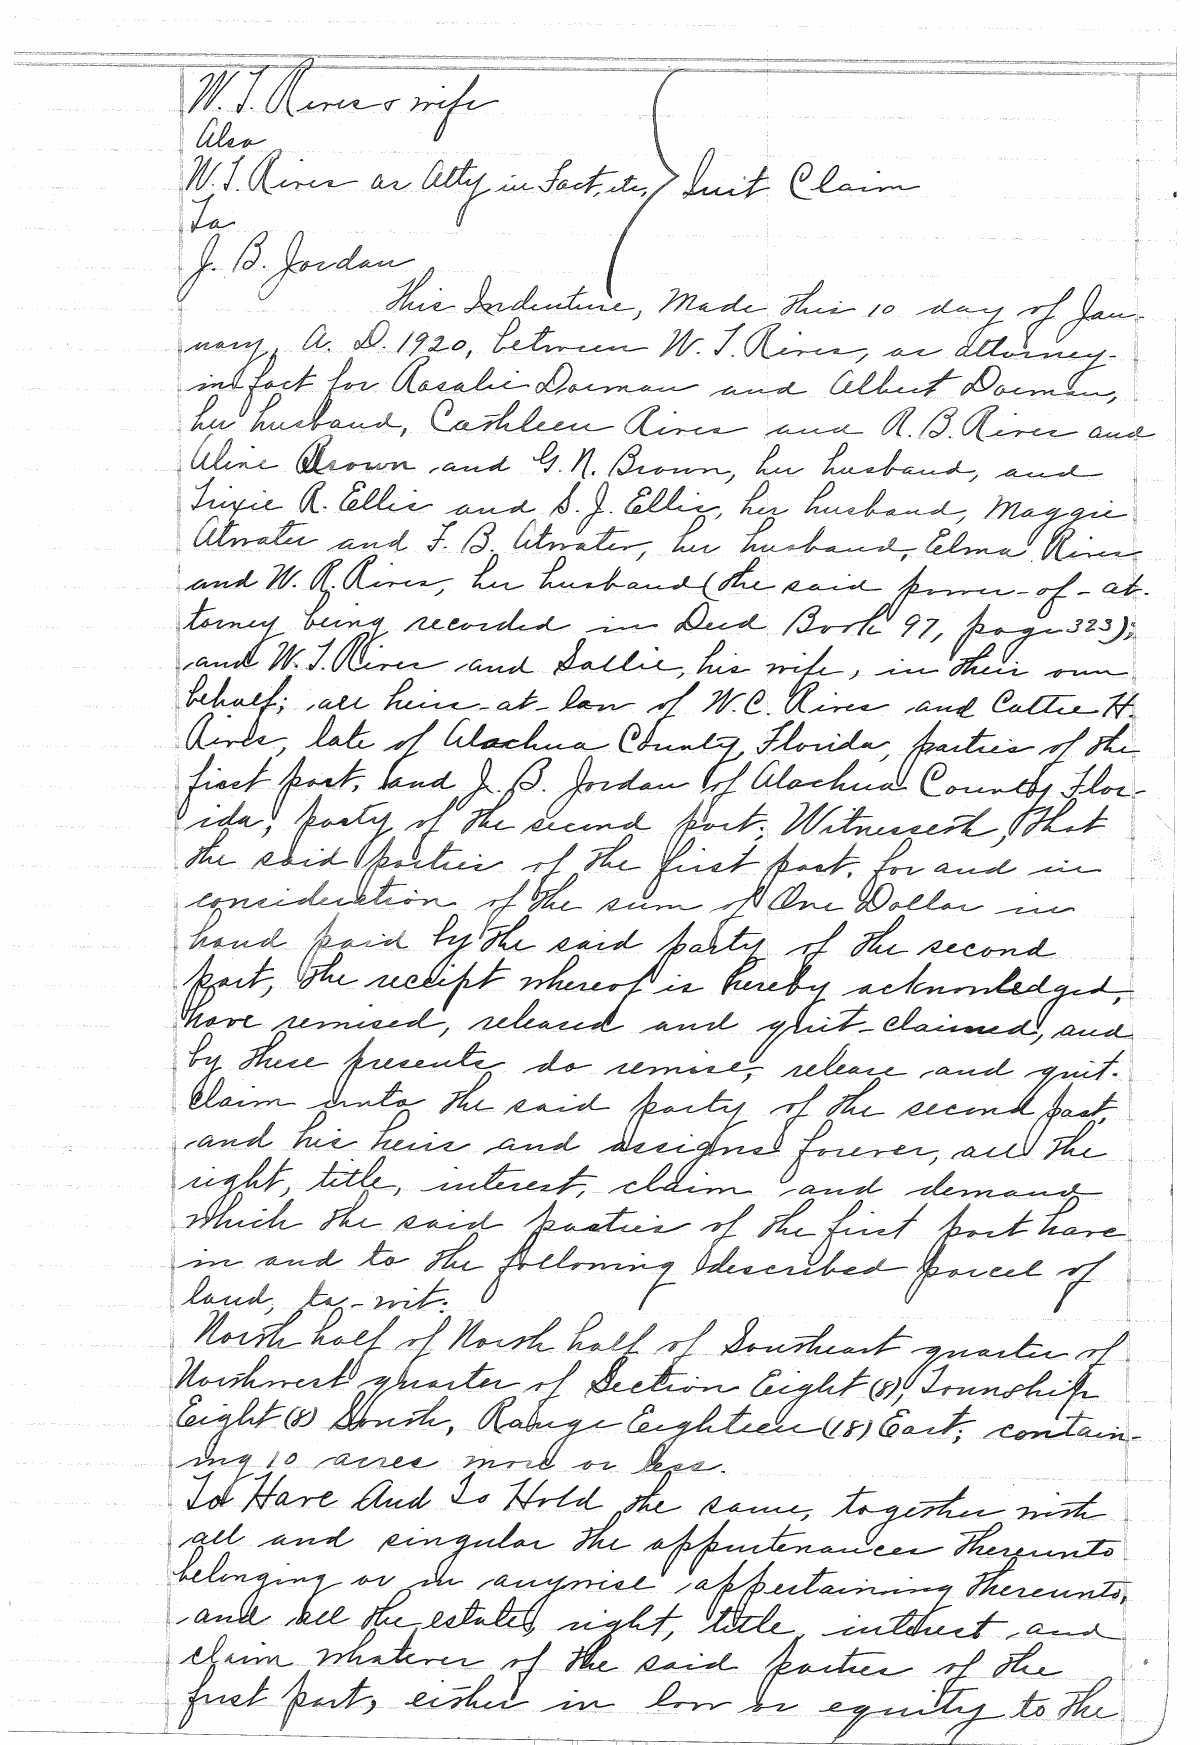 W. T. Rives & wife
Also
W. T. Rives as Atty in Fact, etc,
Quit Claim
To
J. B. Jordan
This Indenture, Made this 10 day of Jan-
uary, A. D. 1920, between W. T. Rives, as attorney-
in fact for Rosalie Dorman and Albert Dorman,
her husband, Cathleen Rives and R. B. Rives and
Aline Brown and G. N. Brown, her husband, and
Trixie R. Ellis and S. J. Ellis, her husband, Maggie
Atwater and F. B. Atwater, her husband, Elma Rives
and W. R. Rives, her husband (the said power-of-at-
torney being recorded in Deed Book 97, page 323);
and W. T. Rives and Sallie, his wife, in their own
behalf; all heirs-at-law of W. C. Rives and Cattie H.
Rives, late of Alachua County, Florida, parties of the
first part, and J. B. Jordan of Alachua County Flor-
ida, party of the second part; Witnesseth, that
the said parties of the first part, for and in
consideration of the sum of One Dollar in
hand paid by the said party of the second
part, the receipt whereof is hereby acknowledged,
have remised, released and quit-claimed, and
by these presents do remise, release and quit-
claim unto the said party of the second part,
and his heirs and assigns forever, all the
right, title, interest, claim and demand
which the said parties of the first part have
in and to the following described parcel of
land, to-wit:
North half of North half of Southeast quarter of
Northwest quarter of Section Eight (8), Township
Eight (8) South, Range Eighteen (18) East; contain-
ing 10 acres more or less.
To Have And To Hold the same, together with
all and singular the appurtenances thereunto
belonging or in anywise appertaining thereunto,
and all the estate, right, title, interest and
claim whatever of the said parties of the
first part, either in law or equity to the